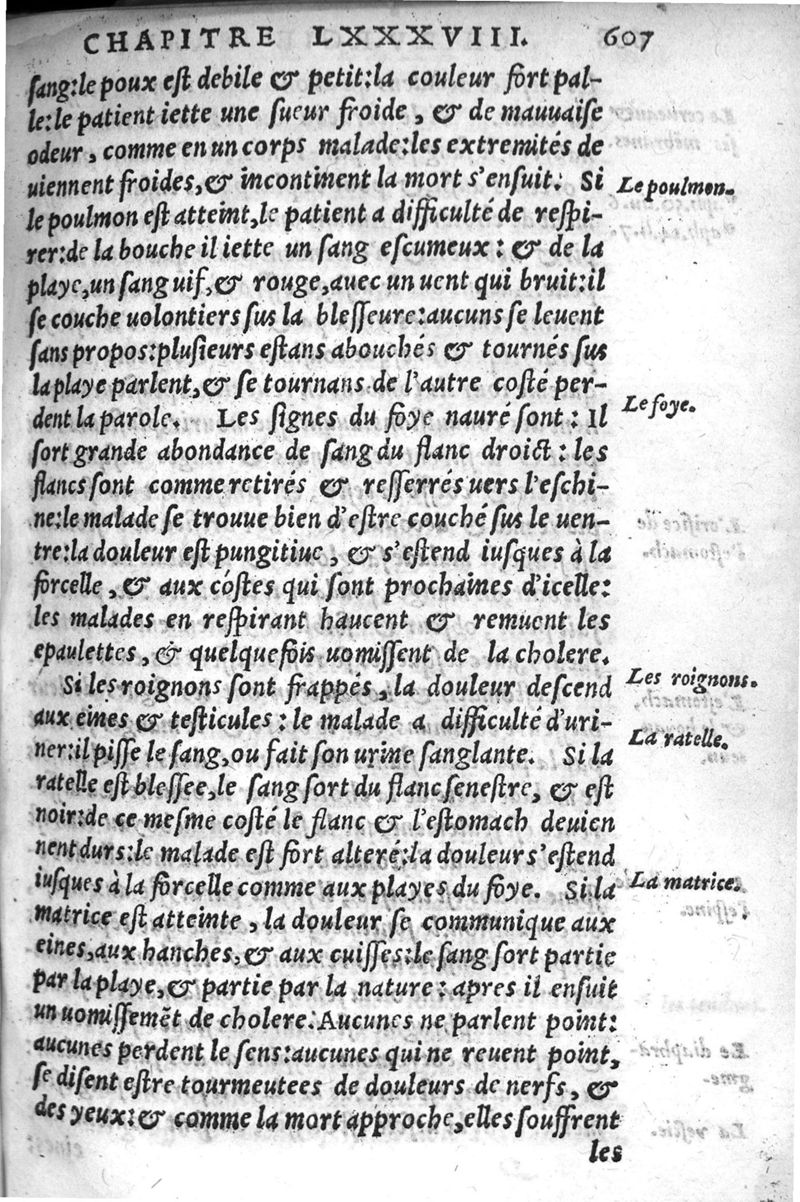 CHAPITRE LXXXVIII. 607
sang:le poux est debile & petit:la couleur fort pal-
le:le patient iette une sueur froide, & de mauuaise
odeur, comme en un corps malade:les extremités de
uiennent froides,& incontinent la mort s'ensuit. Si
Le poulmon.
le poulmon est atteint,le patient a difficulté de respi-
rer:de la bouche il iette un sang escumeux: & de la
playe,un sang uif,& rouge,auec un uent qui bruit:il
se couche uolontiers sus la blesseure:aucuns se leuent
sans propos:plusieurs estans abouchés & tournés sus
la playe parlent,& se tournans de l'autre costé per-
dent la parole. Les signes du foye nauré sont: Il
Le foye.
sort grande abondance de sang du flanc droict: les
flancs sont comme retirés & resserrés uers l'eschi-
ne:le malade se trouue bien d'estre couché sus le uen-
tre:la douleur est pungitiue, & s'estend iusques à la
forcelle, & aux costes qui sont prochaines d'icelle:
les malades en respirant haucent & remuent les
epaulettes, & quelquefois uomissent de la cholere.
Si les roignons sont frappés, la douleur descend
Les roignons.
aux eines & testicules: le malade a difficulté d'uri-
ner:il pisse le sang,ou fait son urine sanglante. Si la
La ratelle.
ratelle est blessee,le sang sort du flanc senestre, & est
noir:de ce mesme costé le flanc & l'estomach deuien
nent durs:le malade est fort alteré:la douleur s'estend
iusques à la forcelle comme aux playes du foye. Si la
La matrice.
matrice est atteinte, la douleur se communique aux
eines,aux hanches,& aux cuisses:le sang sort partie
par la playe,& partie par la nature: apres il ensuit
un uomissemẽt de cholere. Aucunes ne parlent point:
aucunes perdent le sens:aucunes qui ne reuent point,
se disent estre tourmeutees de douleurs de nerfs, &
des yeux:& comme la mort approche,elles souffrent
les